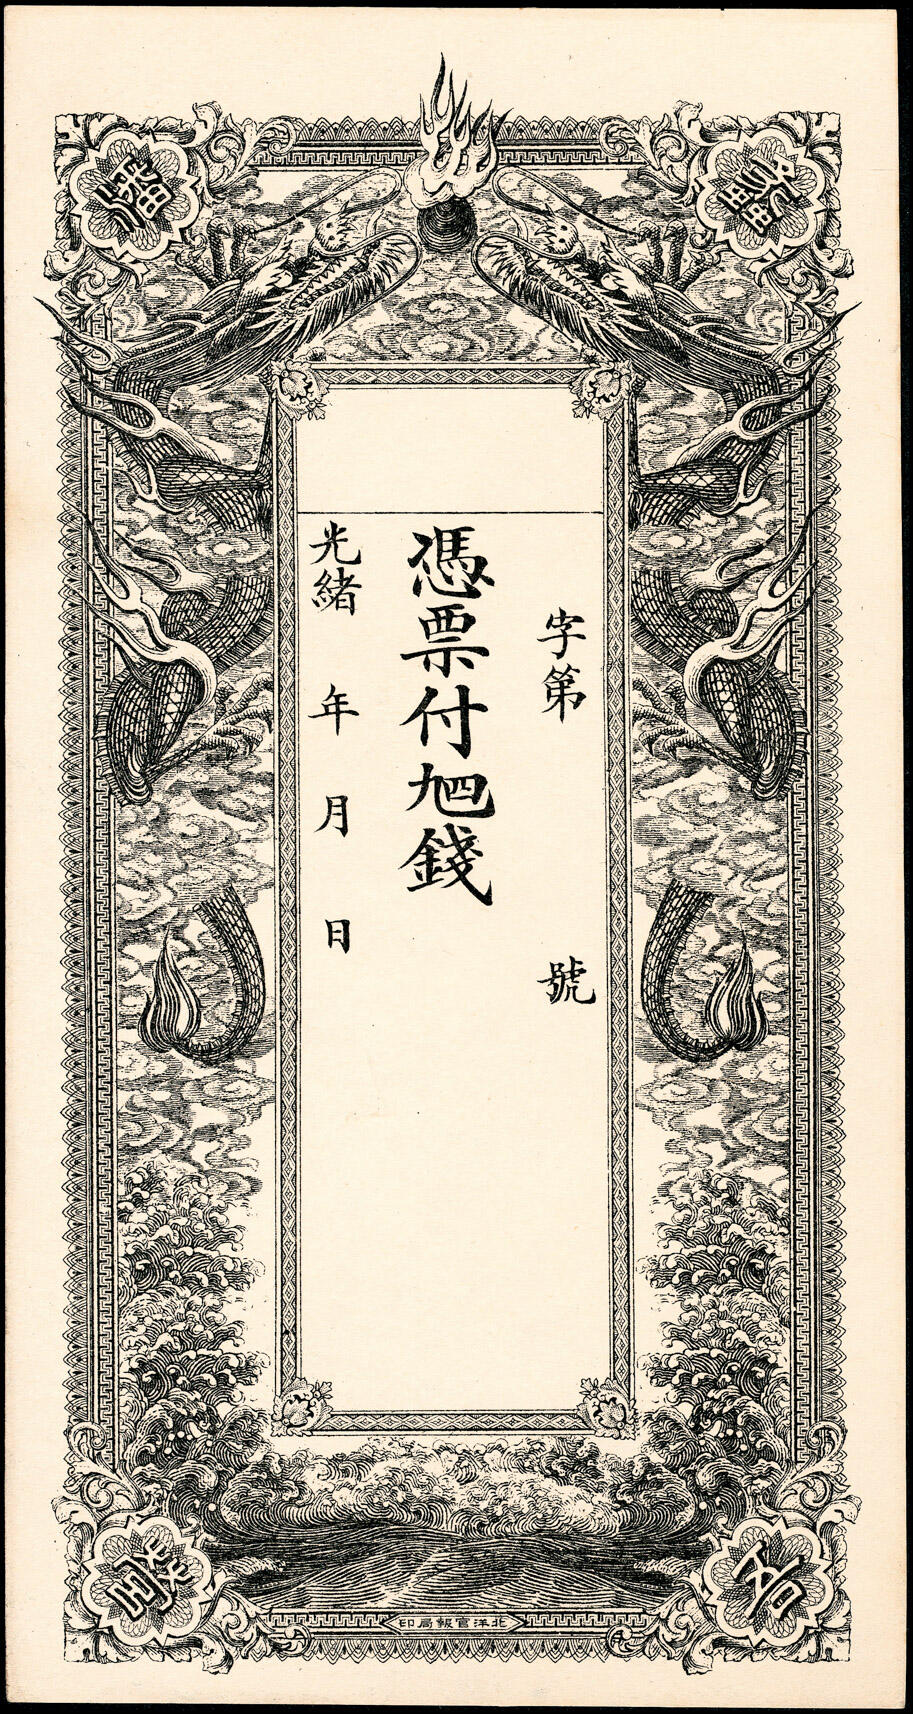 字第 號
憑票付九四錢
光緒 年 月 日
北洋官報局印